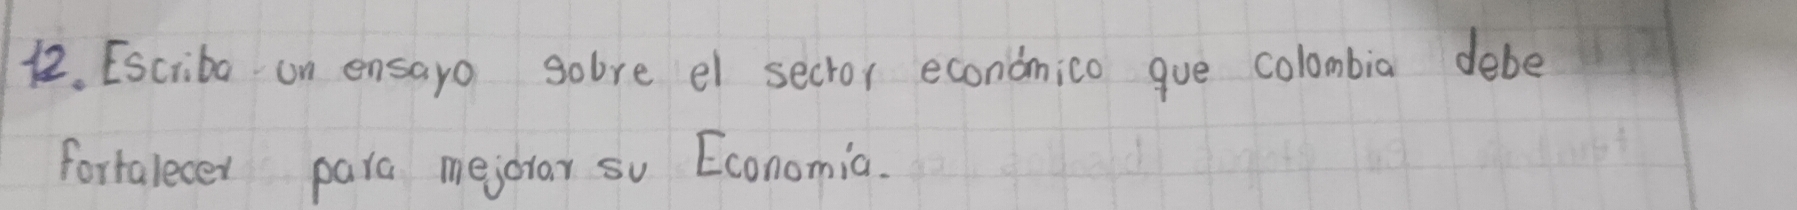 12. Escriba un ensayo sobre el sector económico que colombia debe
fortalecer para mejorar su Economía.